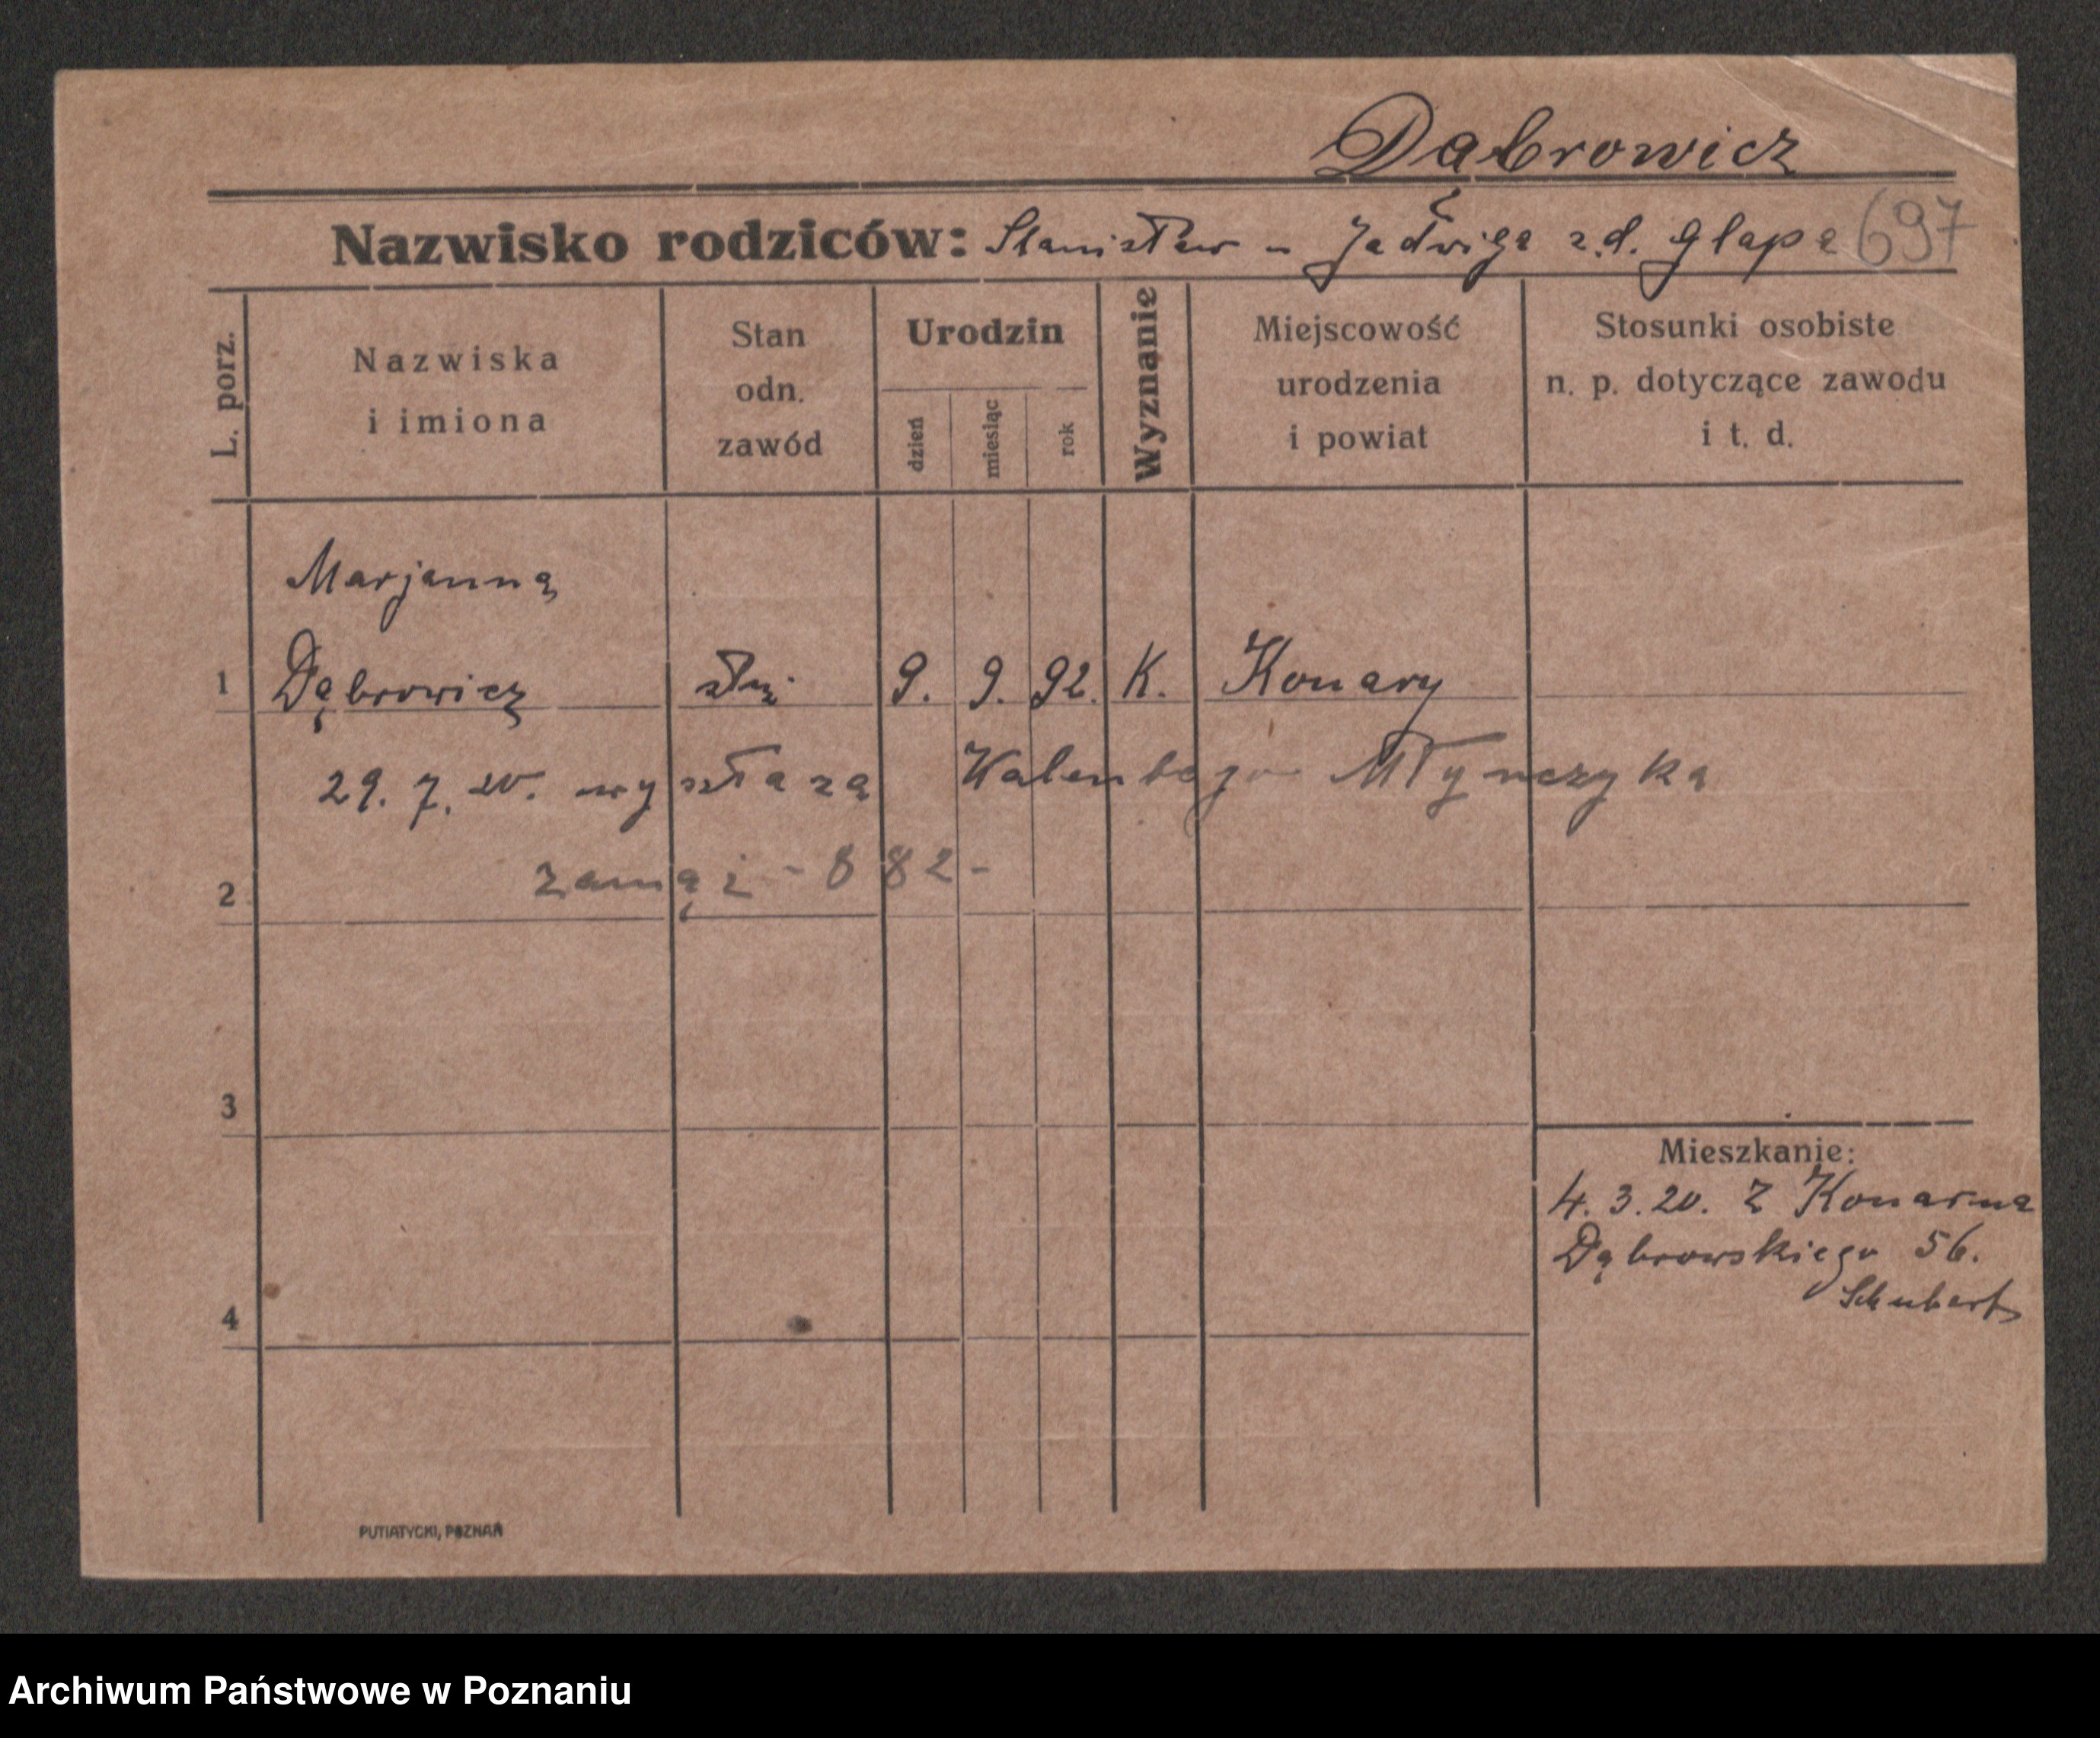 Dąbrowicz
Nazwisko rodziców: Stanisław - Jadwiga z.d. Glapa 697
L. porz.
Nazwiska
i imiona
Stan
odn.
zawód
Urodzin
dzień
miesiąc
rok
Wyznanie
Miejscowość
urodzenia
i powiat
Stosunki osobiste
n. p. dotyczące zawodu
i t. d.
Marjanna
1 Dąbrowicz służ. 9. 9. 92. K. Konary
29. 7. 20. wyszła za Walentego Młynczyka
2 zamąż - 882 -
3
Mieszkanie:
4. 3. 20. Z
Dąbrowskiego 56.
Schubert
4
PUTIATYCKI, POZNAŃ
Archiwum Państwowe w Poznaniu